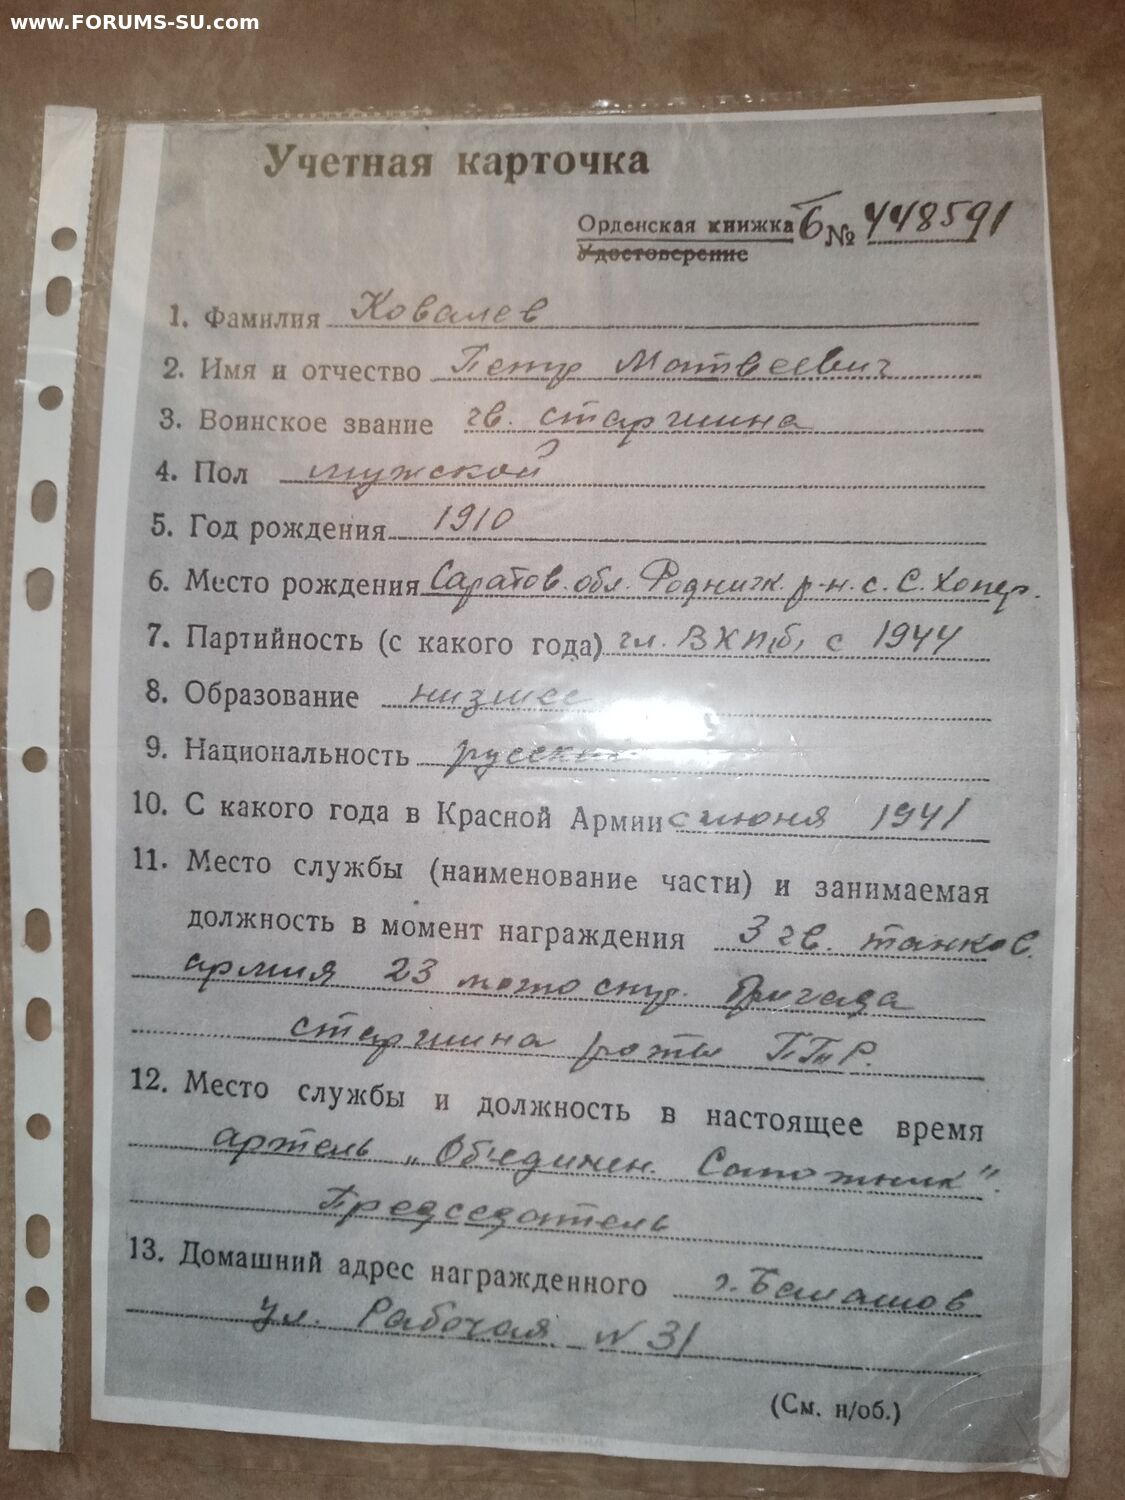 www.FORUMS-SU.com
Учетная карточка
Орденская книжка Б № 448591
Удостоверение
1. Фамилия Ковалев
2. Имя и отчество Петр Матвеевич
3. Воинское звание гв. старшина
4. Пол мужской
5. Год рождения 1910
6. Место рождения Саратов. обл. Роднич. р-н. с. С. Хопер.
7. Партийность (с какого года) чл. ВКП(б) с 1944
8. Образование низшее
9. Национальность русский
10. С какого года в Красной Армии с июня 1941
11. Место службы (наименование части) и занимаемая
должность в момент награждения 3 гв. танков.
армия 23 мото стр. бригада
старшина роты ПТР.
12. Место службы и должность в настоящее время
артель „Объединен. Сапожник".
Председатель
13. Домашний адрес награжденного г. Балашов
ул. Рабочая N 31
(См. н/об.)